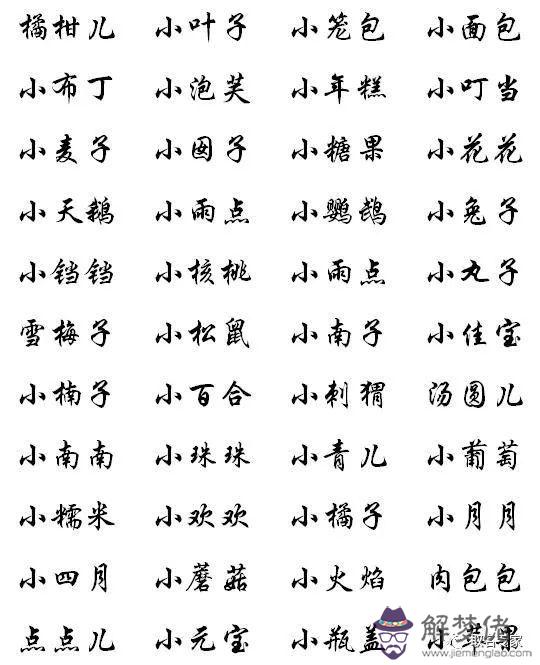 橘柑儿 小叶子 小笼包 小面包
小布丁 小泡芙 小年糕 小叮当
小麦子 小囡子 小糖果 小花花
小天鹅 小雨点 小鹦鹉 小兔子
小铛铛 小核桃 小雨点 小丸子
雪梅子 小松鼠 小南子 小佳宝
小楠子 小百合 小刺猬 汤圆儿
小南南 小珠珠 小青儿 小葡萄
小糯米 小欢欢 小橘子 小月月
小四月 小蘑菇 小火焰 肉包包
点点儿 小元宝 小瓶盖 小苹果
解梦佬
www.jiemenglao.com